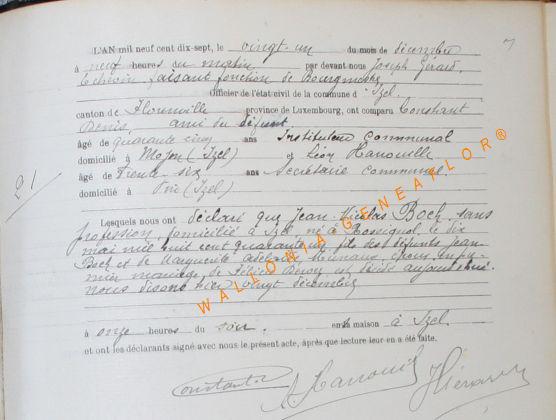 7
L'AN mil neuf cent dix-sept, le vingt-un du mois de décembre
à neuf heures du matin par devant nous Joseph Gérard,
Echevin faisant fonction de Bourgmestre
Officier de l'état civil de la commune d' Izel
canton de Florenville province de Luxembourg, ont comparu Constant
Denis, ami du défunt
âgé de quarante cinq ans Instituteur communal
domicilié à Moyen (Izel) & Léon Hanouille
âgé de Trente-six ans Secrétaire communal
domicilié à Pin (Izel)
21
Lesquels nous ont déclaré que Jean-Nicolas Boch, sans
profession, domicilié à Izel né à Rossignol, le dix
mai mil huit cent quarante un fils des défunts Jean
Boch et de Marguerite Adelaïde
mariage de est décédé aujourd'hui.
nous disons hier vingt décembre
à onze heures du soir. en sa maison à Izel
et ont les déclarants signé avec nous le présent acte, après que lecture leur en a été faite.
Hanouille
WALLONIA GENEATLOR®